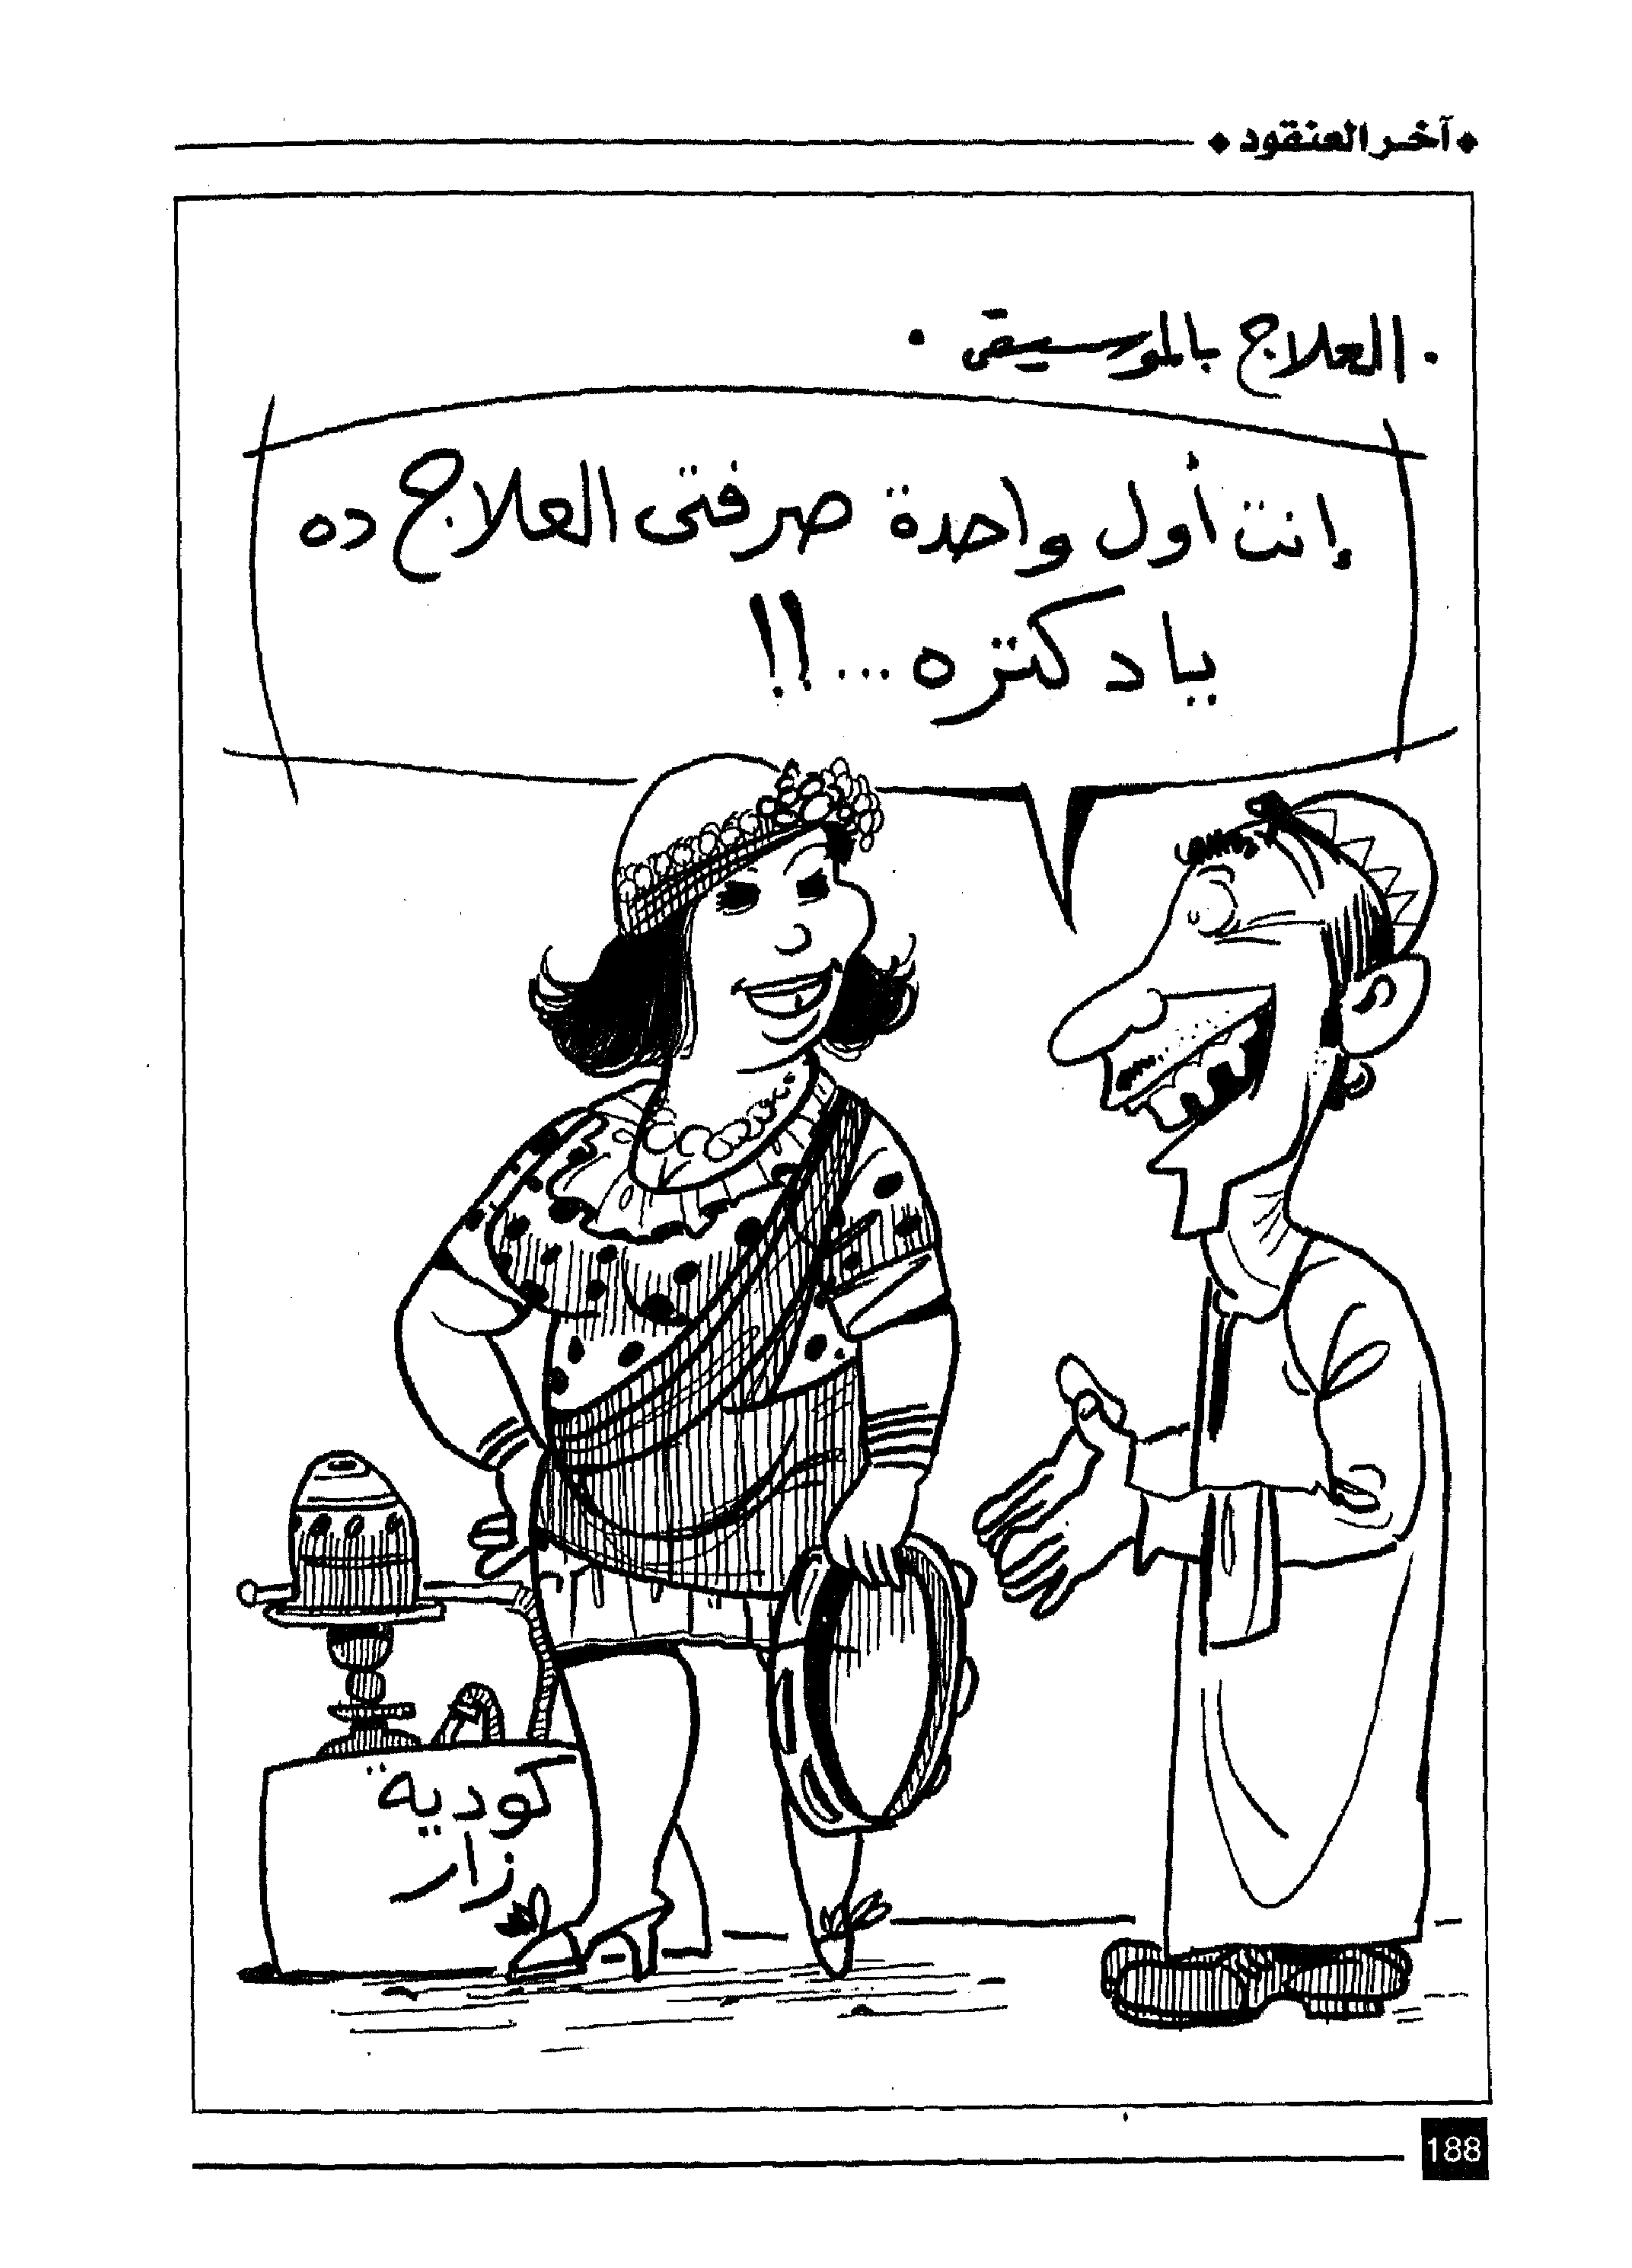 آخر العنقود
. العلاج بالموسيقى .
إنت أول واحدة صرفتى العلاج ده
يا دكتره ... !!
كودية
زار
188